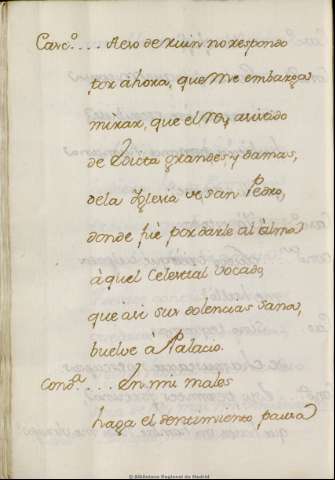 Carco.... A eso de ruin no respondo
por ahora, que me embarga
mirar, que el Rey asistido
de Grandes, y damas,
de la Iglesia de San Pedro,
donde fuè por darle al alma
à quel Celestial bocado,
que asi sus dolencias sana,
buelve à Palacio.
Conde.... En mis males
haga el sentimiento pausa
© Biblioteca Regional de Madrid